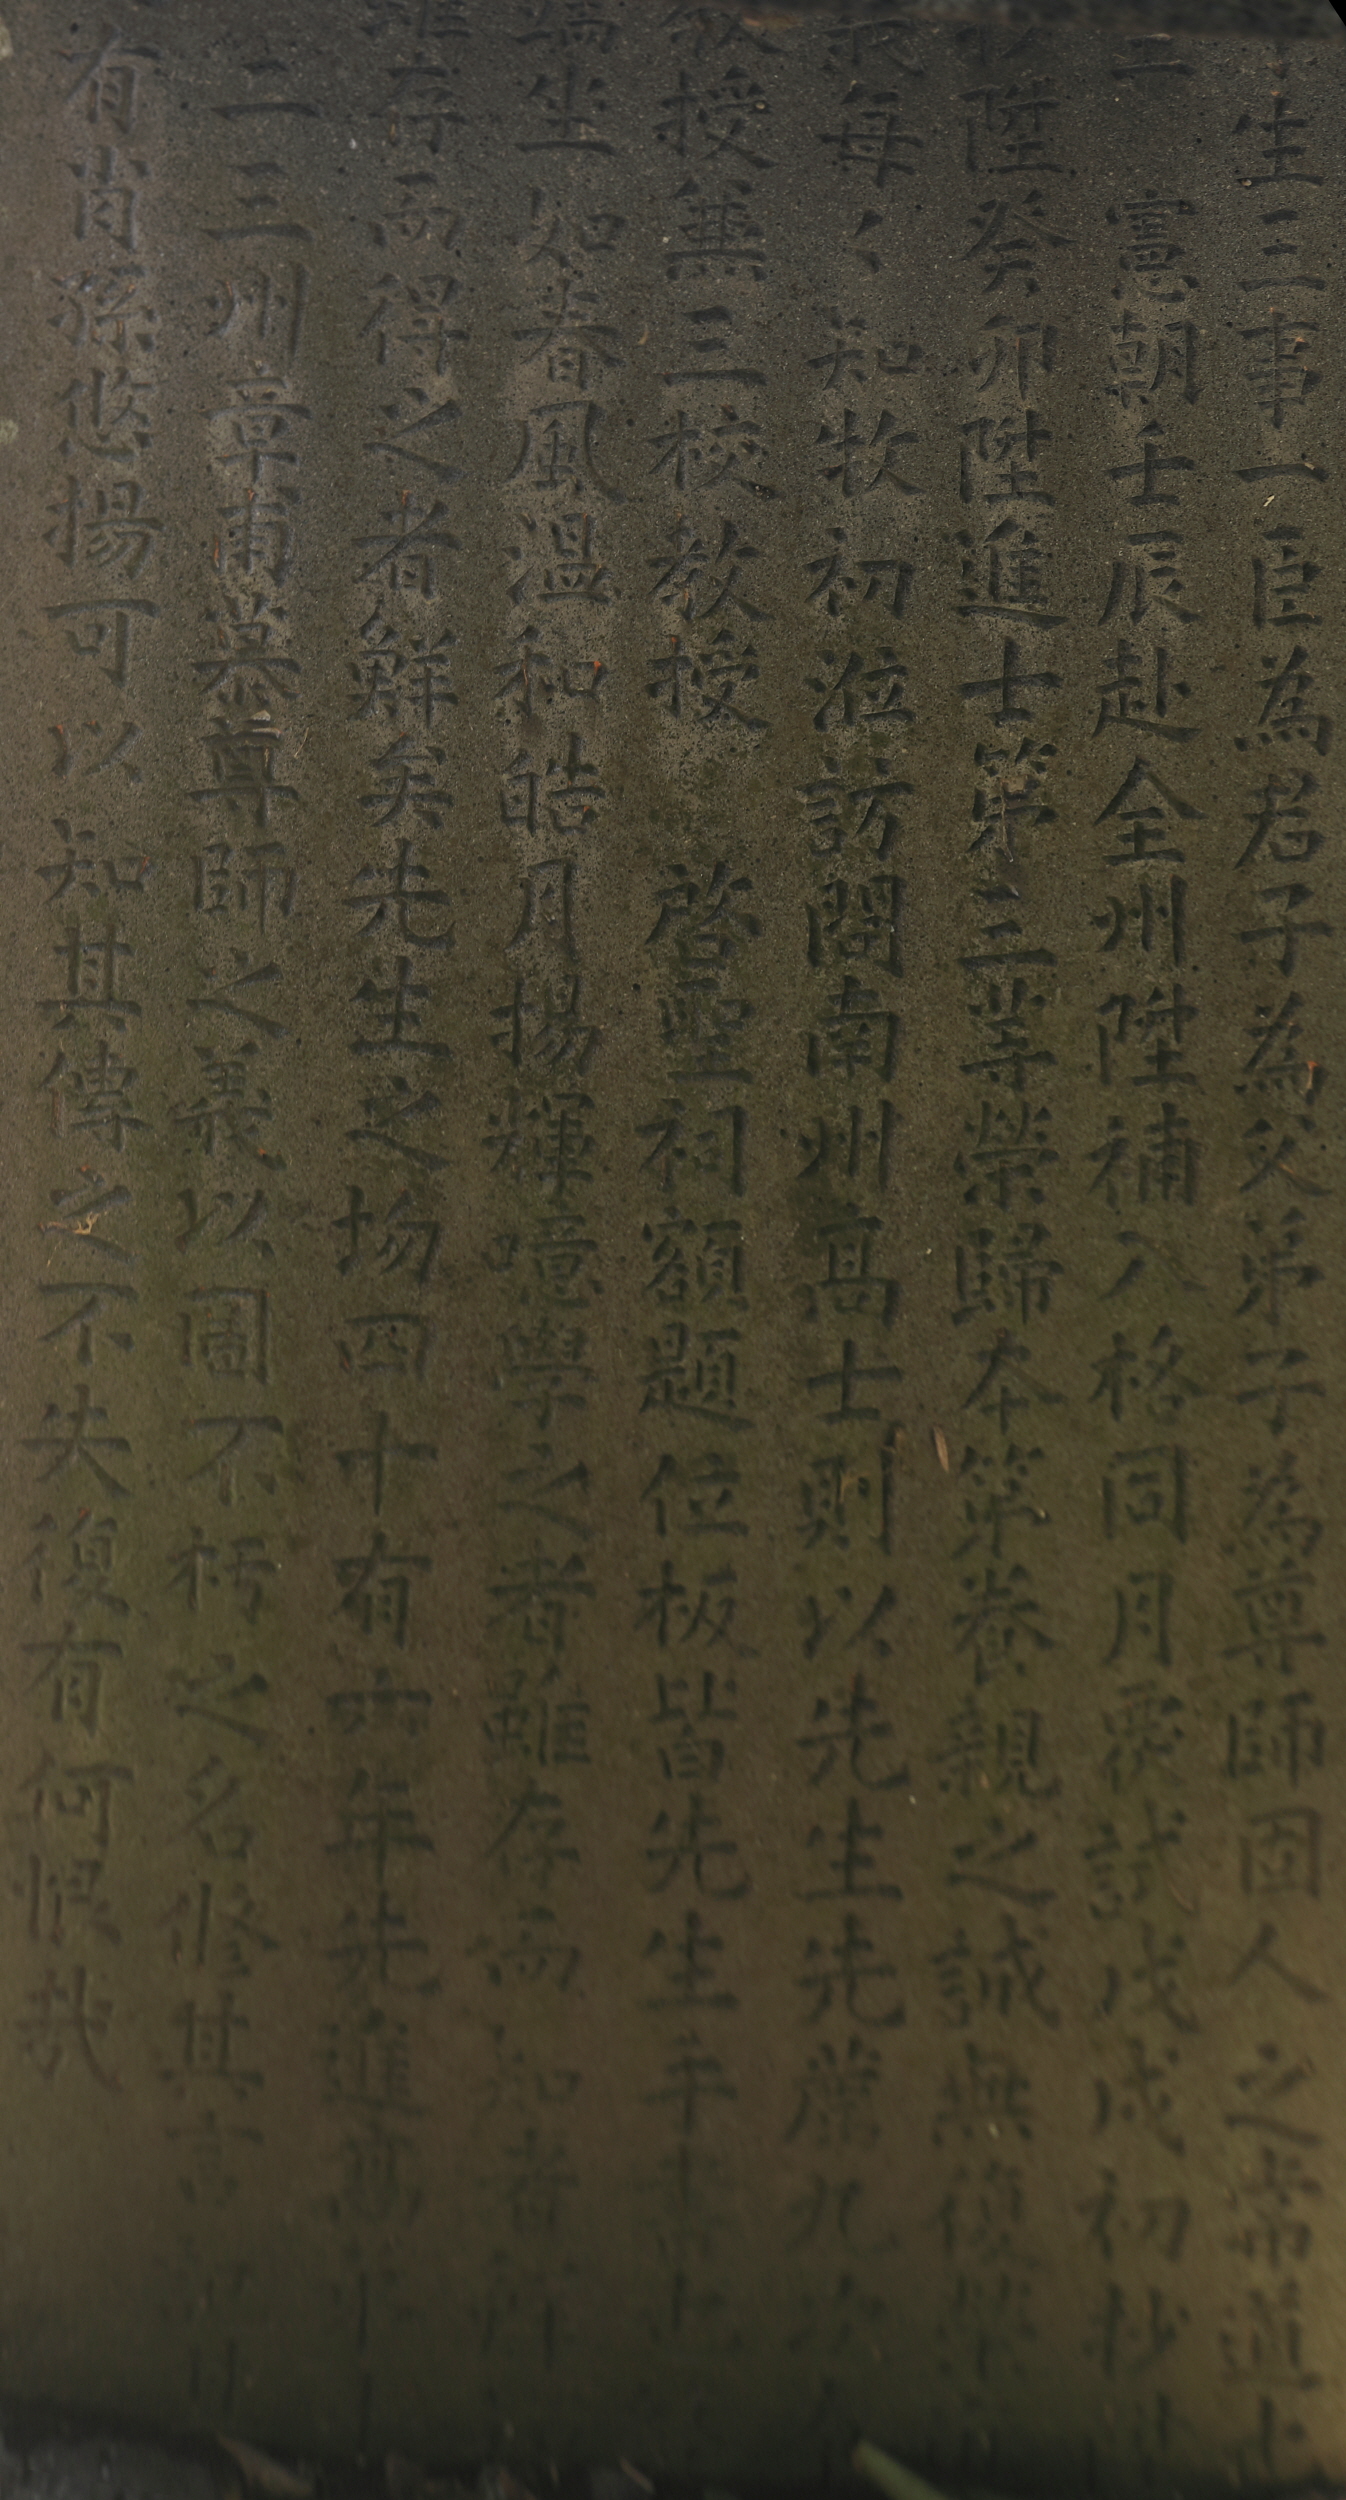 生三事一臣為君子為父弟子為尊師固人之常道
憲朝壬辰赴全州陞補入格同月覆試戊戌初
陞癸卯陞進士第三等榮歸本第養親之誠無復
每〻知牧初涖訪問南州高士則以先生先薦
授兼三校教授啓聖祠額題位板皆先生手
端坐如春風溫和皓月揚輝噫學之者雖存而知者
存而得之者鮮矣先生之場四十有六年先進
二三州章甫慕尊師之義以圖不朽之名修其
有肖孫悠揚可以知其傳之不失復有何恨哉